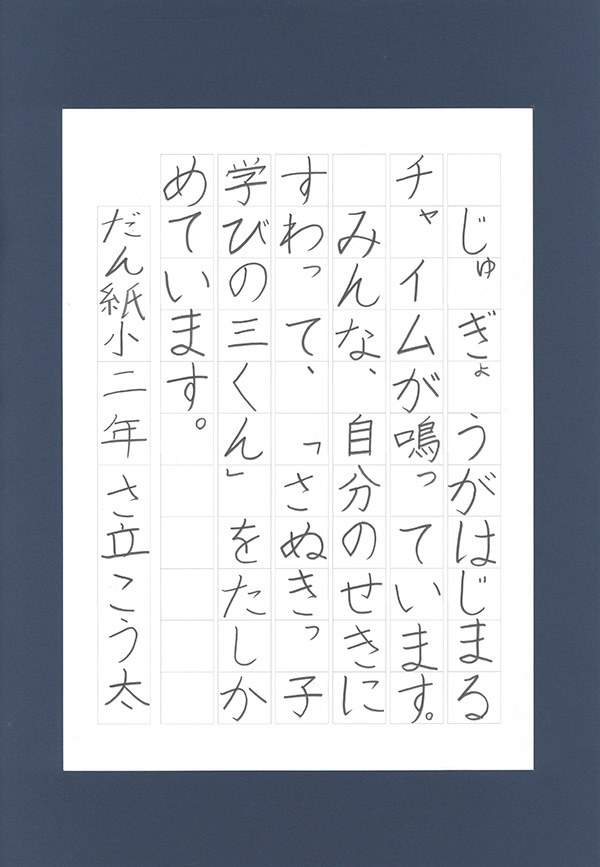 じゅぎょうがはじまる
チャイムが鳴っています。
みんな、自分のせきに
すわって、「さぬきっ子
学びの三くん」をたしか
めています。
だん紙小二年さ立こう太